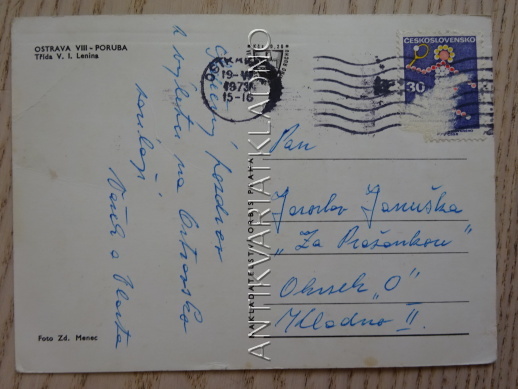 OSTRAVA VIII - PORUBA
Třída V. I. Lenina
Srdečný pozdrav
z výletu na Ostravsko
zasílají
Vašek a Vlasta
Foto Zd. Menec
NAKLADATELSTVÍ ORBIS PRAHA
ANTIKVARIAT KLADNO
19.-VI.
1973
15-16
ČESKOSLOVENSKO
30
Pan
Jaroslav Januška
"Za Pražankou"
Okrsek "O"
Kladno II.